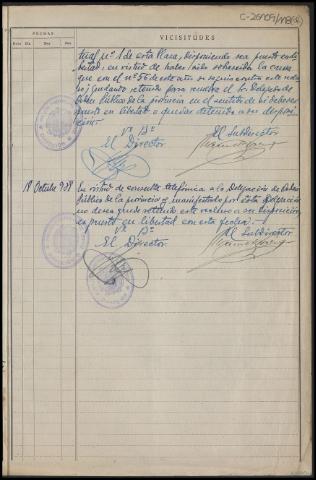 C-26109/118(2)
FECHAS
VICISITUDES
Hora Día Mes Año
nº 1 de esta Plaza, disponiendo sea puesto en li-
bertad, en virtud de haber sido sobreseida la causa
que con el nº 56 de este año se seguia contra este reclu-
so; quedando retenido para resolver el Sr. Delegado de
Orden Público de la provincia en el sentido de si debe ser
puesto en libertad o quedar detenido a su disposi-
ción.
Vº Bº
El Director
El Subdirector
18 Octubre 938
En virtud de consulta telefónica a la Delegación de Orden
Público de la provincia y manifestado por esta Delegación
no desea quede retenido este recluso a su disposición
es puesto en libertad con esta fecha.
Vº Bº
El Director
El Subdirector